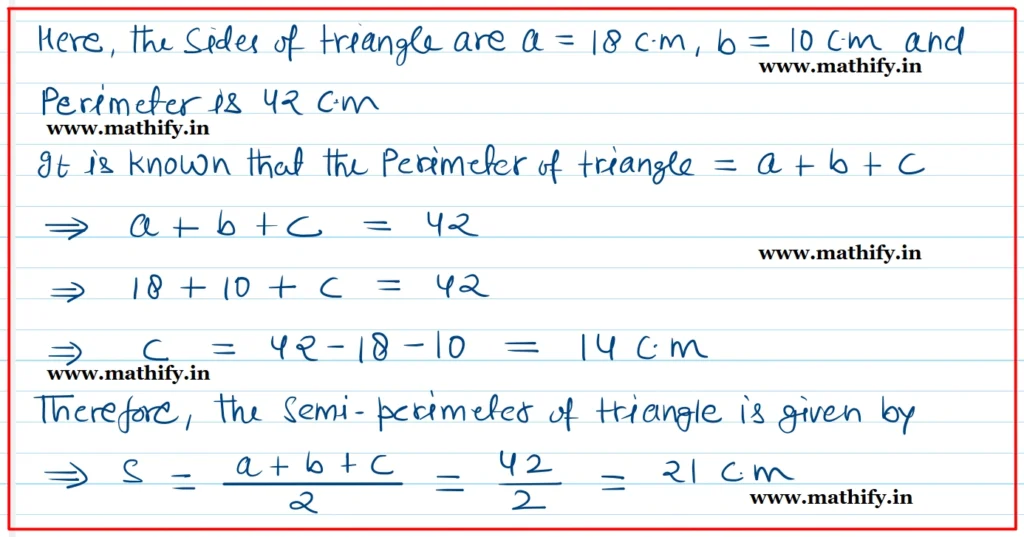 Here, the sides of triangle are a = 18 c.m, b = 10 c.m and
www.mathify.in
Perimeter is 42 c.m
www.mathify.in
It is known that the Perimeter of triangle = a + b + c
⇒ a + b + c = 42
www.mathify.in
⇒ 18 + 10 + c = 42
⇒ c = 42 - 18 - 10 = 14 c.m
www.mathify.in
Therefore, the semi-perimeter of triangle is given by
⇒ S = (a + b + c)/2 = 42/2 = 21 c.m
www.mathify.in